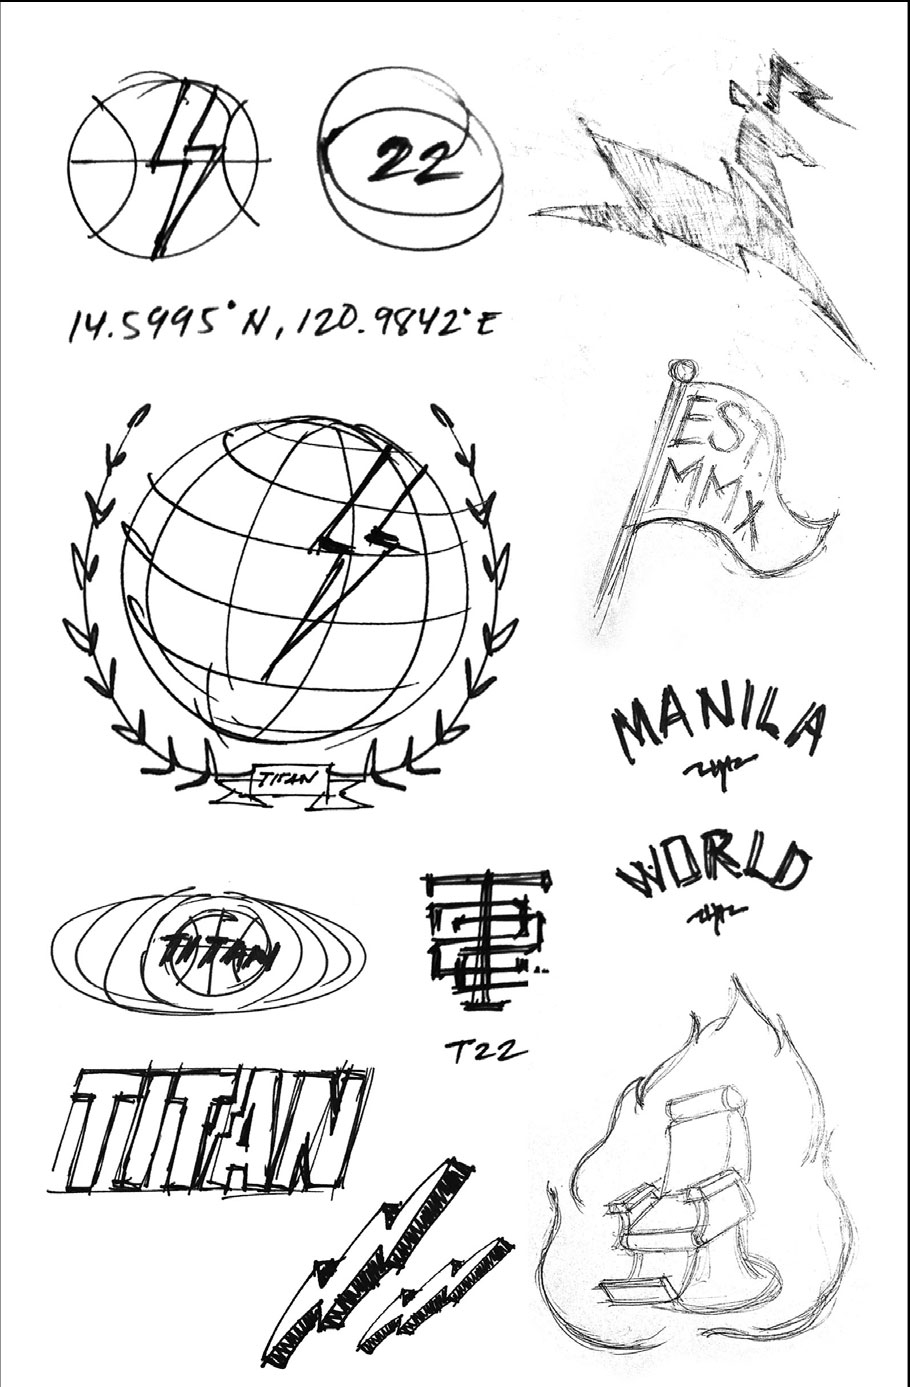 22
14.5995° N, 120.9842° E
EST
MMX
MANILA
WORLD
TITAN
TITAN
T22
TITAN